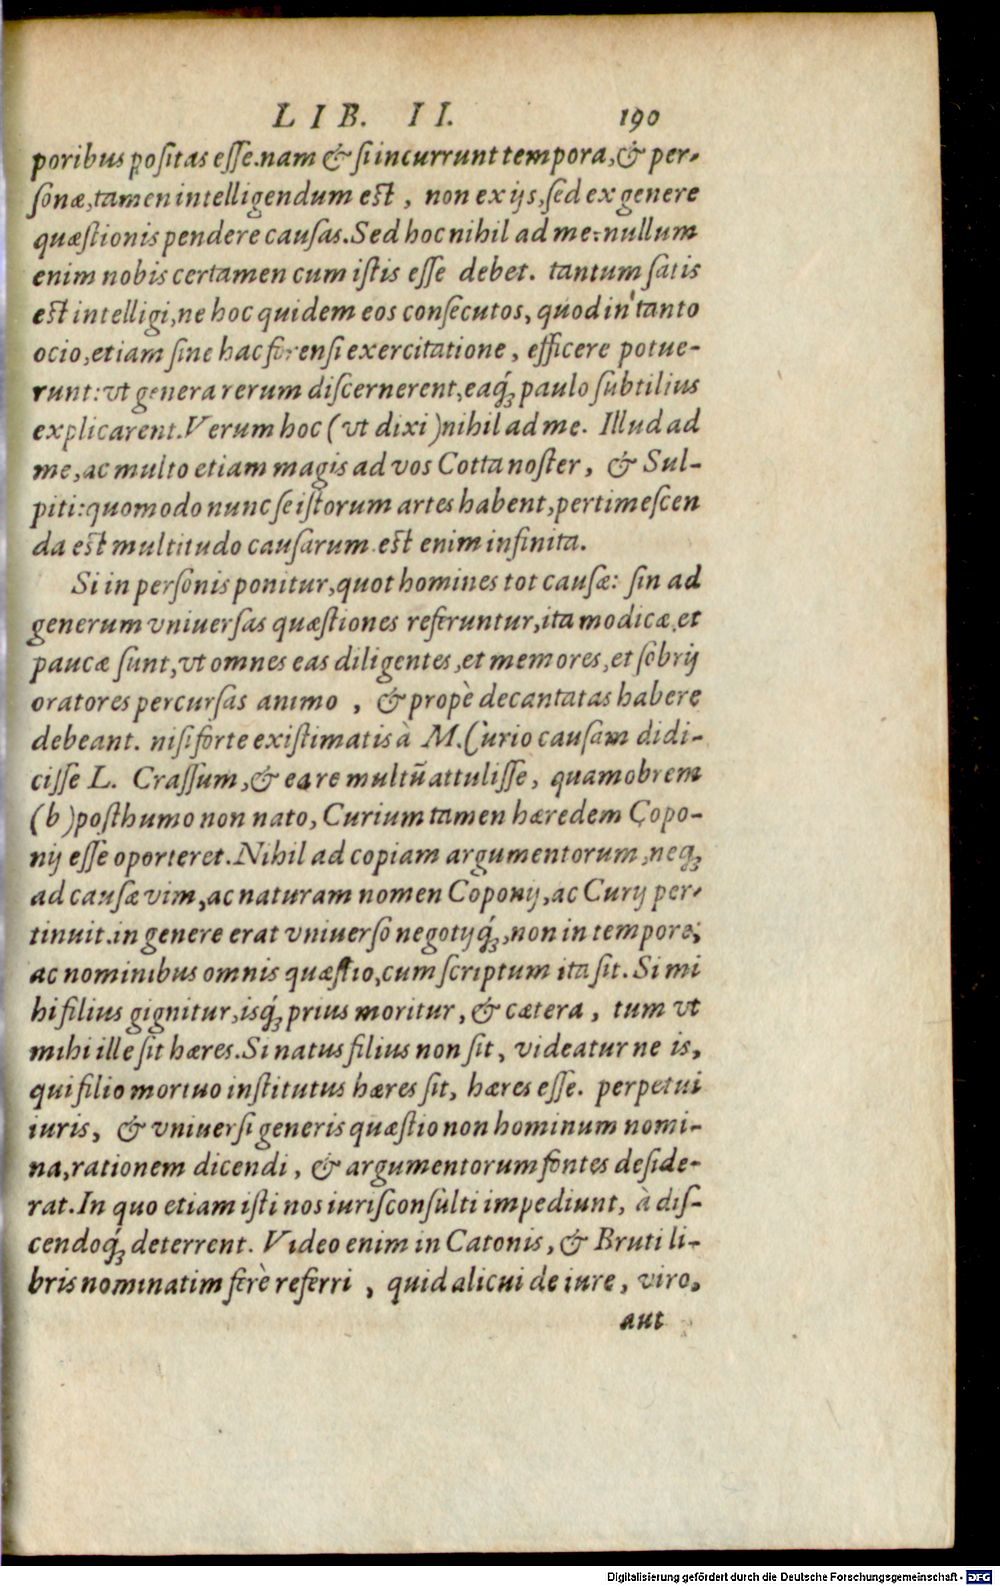 LIB. II. 190
poribus positas esse. nam & si incurrunt tempora, & per-
sonæ, tamen intelligendum est, non ex ijs, sed ex genere
quæstionis pendere causas. Sed hoc nihil ad me: nullum
enim nobis certamen cum istis esse debet. tantum satis
est intelligi, ne hoc quidem eos consecutos, quod in tanto
ocio, etiam sine hac forensi exercitatione, efficere potue-
runt: vt genera rerum discernerent, eaq́; paulo subtilius
explicarent. Verum hoc (vt dixi) nihil ad me. Illud ad
me, ac multo etiam magis ad vos Cotta noster, & Sul-
piti: quomodo nunc se istorum artes habent, pertimescen
da est multitudo causarum. est enim infinita.
Si in personis ponitur, quot homines tot causæ: sin ad
generum vniuersas quæstiones referuntur, ita modicæ, et
paucæ sunt, vt omnes eas diligentes, et memores, et sobrij
oratores percursas animo, & propè decantatas habere
debeant. nisi forte existimatis à M. Curio causam didi-
cisse L. Crassum, & ea re multũ attulisse, quamobrem
(b) posthumo non nato, Curium tamen hæredem Copo-
nij esse oporteret. Nihil ad copiam argumentorum, neq;
ad causæ vim, ac naturam nomen Coponij, ac Curij per-
tinuit. in genere erat vniuerso negotijq́;, non in tempore,
ac nominibus omnis quæstio, cum scriptum ita sit. Si mi
hi filius gignitur, isq́; prius moritur, & cætera, tum vt
mihi ille sit hæres. Si natus filius non sit, videatur ne is,
qui filio mortuo institutus hæres sit, hæres esse. perpetui
iuris, & vniuersi generis quæstio non hominum nomi-
na, rationem dicendi, & argumentorum fontes deside-
rat. In quo etiam isti nos iurisconsulti impediunt, à dis-
cendoq́; deterrent. Video enim in Catonis, & Bruti li-
bris nominatim ferè referri, quid alicui de iure, viro,
aut
Digitalisierung gefördert durch die Deutsche Forschungsgemeinschaft - DFG